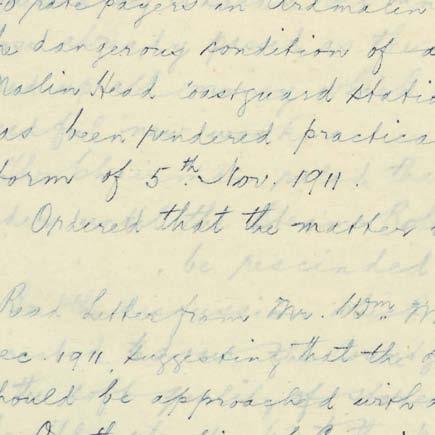 rate payers in Ardmalin
dangerous condition of a
Malin Head Coastguard Statio
as been rendered practica
torm of 5th Nov. 1911.
Ordered that the matter
be rescinded
Read Letter from Mr. Wm. M
ec 1911, suggesting that the
hould be approached with